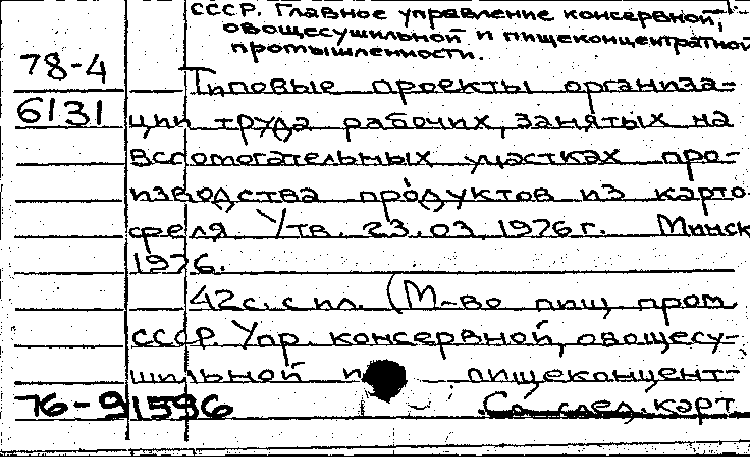 СССР. Главное управление консервной,
овощесушильной и пищеконцентратной
промышленности.
78-4
Типовые проекты организа-
6131
ции труда рабочих, занятых на
вспомогательных участках про-
изводства продуктов из карто
феля Утв. 23.03.1976 г. Минск
1976.
42 с. с ил. (М-во пищ пром
СССР. Упр. консервной, овощесу-
шильной и пищеконцент-
76-91596
См след. карт